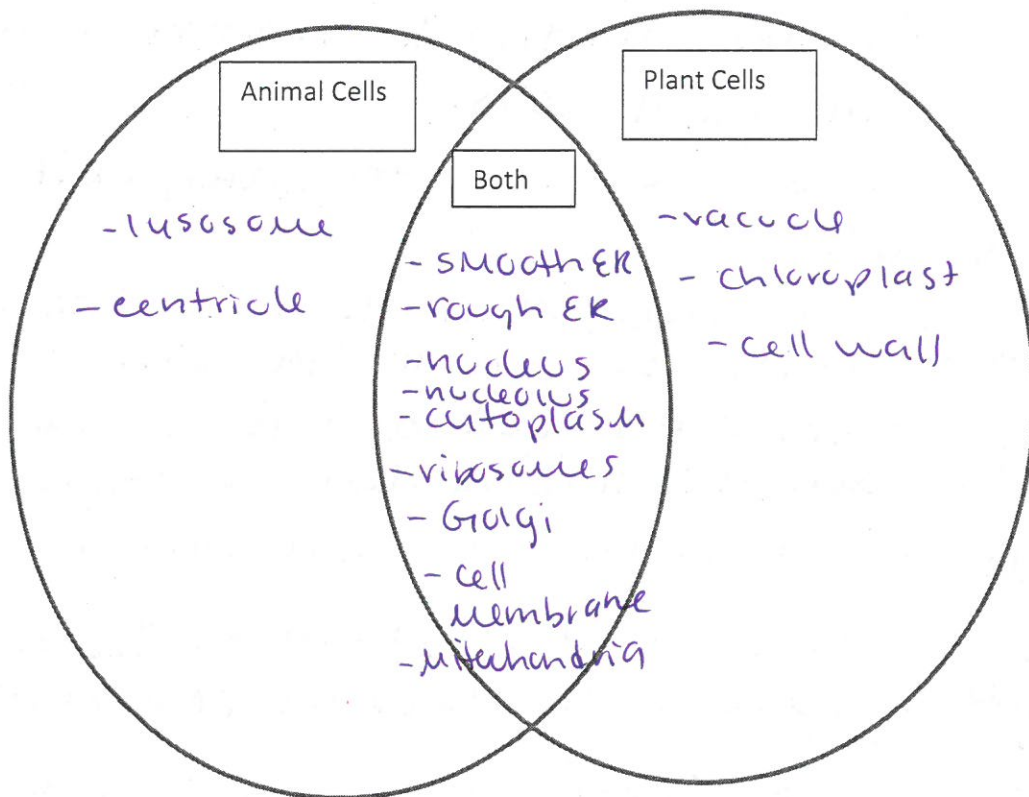 Animal Cells
- lysosome
- centriole
Both
- smooth ER
- rough ER
- nucleus
- nucleolus
- cytoplasm
- ribosomes
- Golgi
- cell
membrane
- mitochondria
Plant Cells
- vacuole
- chloroplast
- cell wall